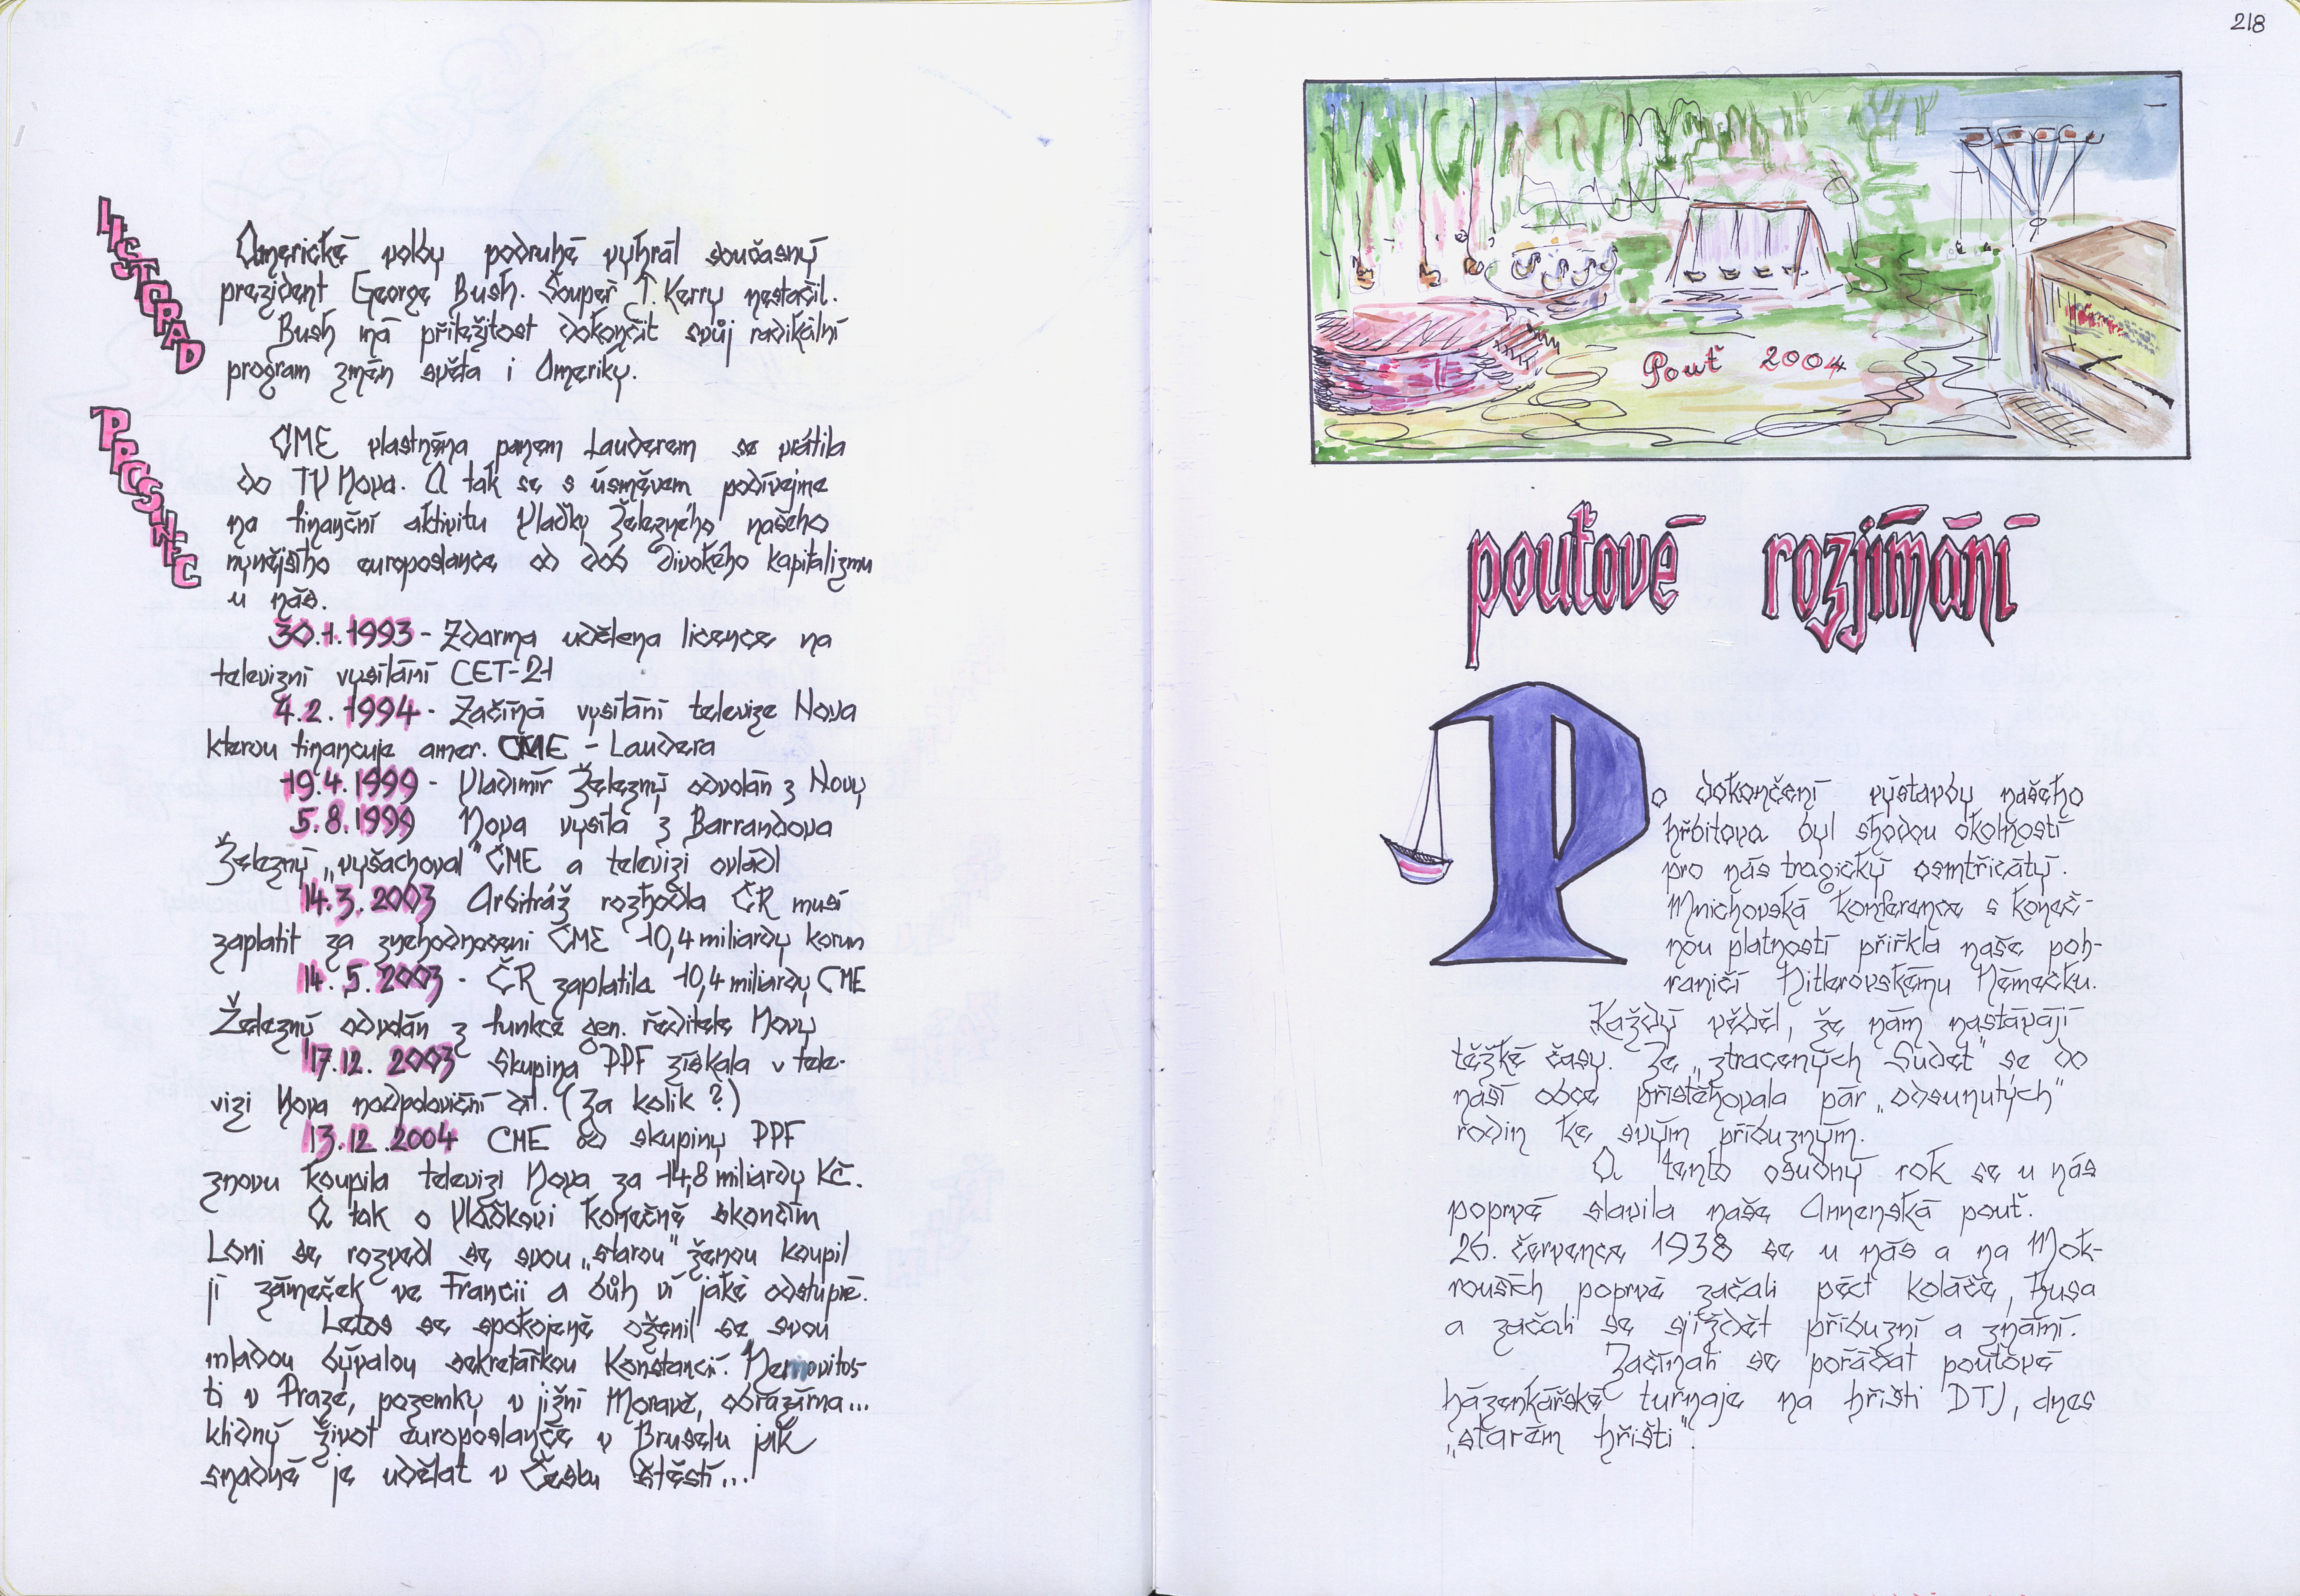 LISTOPAD
Americké volby podruhé vyhrál současný
prezident George Bush. Soupeř J. Kerry nestačil.
Bush má příležitost dokončit svůj radikální
program změn světa i Ameriky.
PROSINEC
CME vlastněna panem Lauderem se vrátila
do TV Nova. A tak se s úsměvem podívejme
na finanční aktivitu Vlaďky Železného našeho
nynějšího europoslance od dob divokého kapitalizmu
u nás.
30.1.1993 - Zdarma udělena licence na
televizní vysílání CET-21
4.2.1994 - Začíná vysílání televize Nova
kterou financuje amer. CME - Laudera
19.4.1999 - Vladimír Železný odvolán z Novy
5.8.1999 Nova vysílá z Barrandova
Železný „vyšachoval" ČME a televizi ovládl
14.3.2003 Arbitráž rozhodla ČR musí
zaplatit za znehodnocení ČME 10,4 miliardy korun
14.5.2003 - ČR zaplatila 10,4 miliardy CME
Železný odvolán z funkce gen. ředitele Novy
17.12.2003 Skupina PPF získala v tele-
vizi Nova nadpoloviční díl. (Za kolik?)
13.12.2004 CME od skupiny PPF
znovu koupila televizi Nova za 14,8 miliardy Kč.
A tak o Vláďkovi konečně skončím
Loni se rozvedl se svou „starou" ženou koupil
jí zámeček ve Francii a bůh ví jaké odstupné.
Letos se spokojeně oženil se svou
mladou bývalou sekretářkou Konstancií. Nemovitos-
ti v Praze, pozemky v jižní Moravě, obrazárna...
klidný život europoslance v Bruselu jak
snadné je udělat v Česku štěstí...
218
Pouť 2004
pouťové rozjímání
Po dokončení výstavby našeho
hřbitova byl shodou okolností
pro nás tragický osmtřicátý.
Mnichovská konference s koneč-
nou platností přiřkla naše poh-
raničí Hitlerovskému Německu.
Každý věděl, že nám nastávají
těžké časy. Ze „ztracených Sudet" se do
naší obce přistěhovala pár „odsunutých"
rodin ke svým příbuzným.
A tento osudný rok se u nás
poprvé slavila naše Annenská pouť.
26. července 1938 se u nás a na Mok-
rouších poprvé začali péct koláče, husa
a začali se sjíždět příbuzní a známí.
Začínali se pořádat pouťové
házenkářské turnaje na hřišti DTJ, dnes
„starém hřišti".